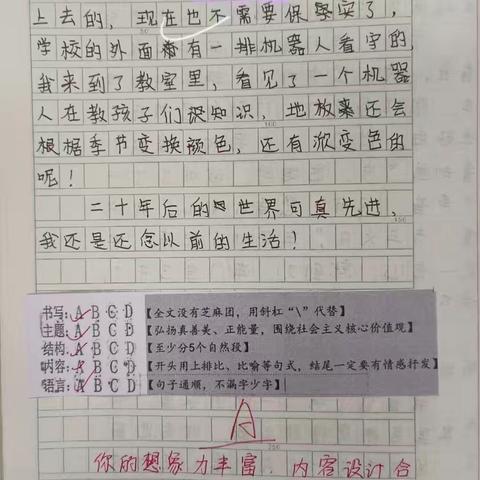 上去的，现在也不需要保安实了，
学校的外面有一排机器人看守的，
我来到了教室里，看见了一个机器
人在教孩子们识知识，地放来还会
根据季节变换颜色，还有渐变色的
呢！
二十年后的世界可真先进，
我还是还念以前的生活！
书写：A B C D 【全文没有芝麻团，用斜杠“\”代替】
主题：A B C D 【弘扬真善美、正能量，围绕社会主义核心价值观】
结构：A B C D 【至少分5个自然段】
内容：A B C D 【开头用上排比、比喻等句式，结尾一定要有情感抒发】
语言：A B C D 【句子通顺，不漏字少字】
A
你的想象力丰富，内容设计合